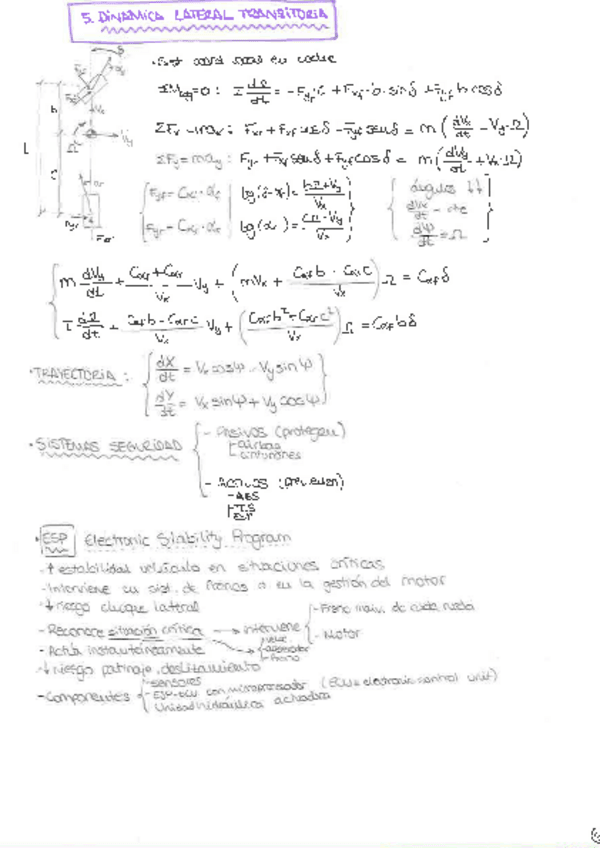 5. DINAMICA LATERAL TRANSITORIA
dt = - Fyr·c + Fxf·b·sinδ + Fyf·b cosδ
ΣFx = max: Fxr + Fxf cosδ - Fyf senδ = m (dVx/dt - Vy·Ω)
ΣFy = may: Fyr + Fxf senδ + Fyf cosδ = m (dVy/dt + Vx·Ω)
ángulos ↓↓
dVx/dt = cte
dψ/dt = Ω
m dVy/dt + Cαf+Cαr/Vx Vy + (mVx + Cαf b - Cαr c/Vx) Ω = Cαf δ
I dΩ/dt + Cαf b - Cαr c/Vx Vy + (Cαf b² + Cαr c²/Vx) Ω = Cαf b δ
· TRAYECTORIA:
dX/dt = Vx cosψ - Vy sinψ
dY/dt = Vx sinψ + Vy cosψ
· SISTEMAS SEGURIDAD
- Pasivos (protegen)
airbag
cinturones
- Activos
- ABS
· ESP Electronic Stability Program
- ↑ estabilidad vehículo en situaciones críticas
- Interviene en sist. de frenos o en la gestión del motor
- ↓ riesgo choque lateral
- Reconoce situación crítica → interviene
- Freno indiv. de cada rueda
- Motor
- Actúa instantáneamente
- ↓ riesgo patinaje, deslizamiento
- Componentes
- Sensores
- ESP-ECU con microprocesador (ECU = electronic control unit)
Unidad hidráulica actuadora